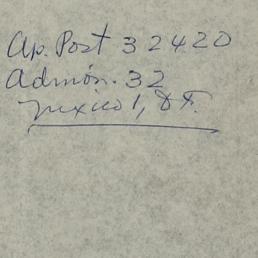 Ap. Post 32420
Admón. 32
Mexico 1, D.F.